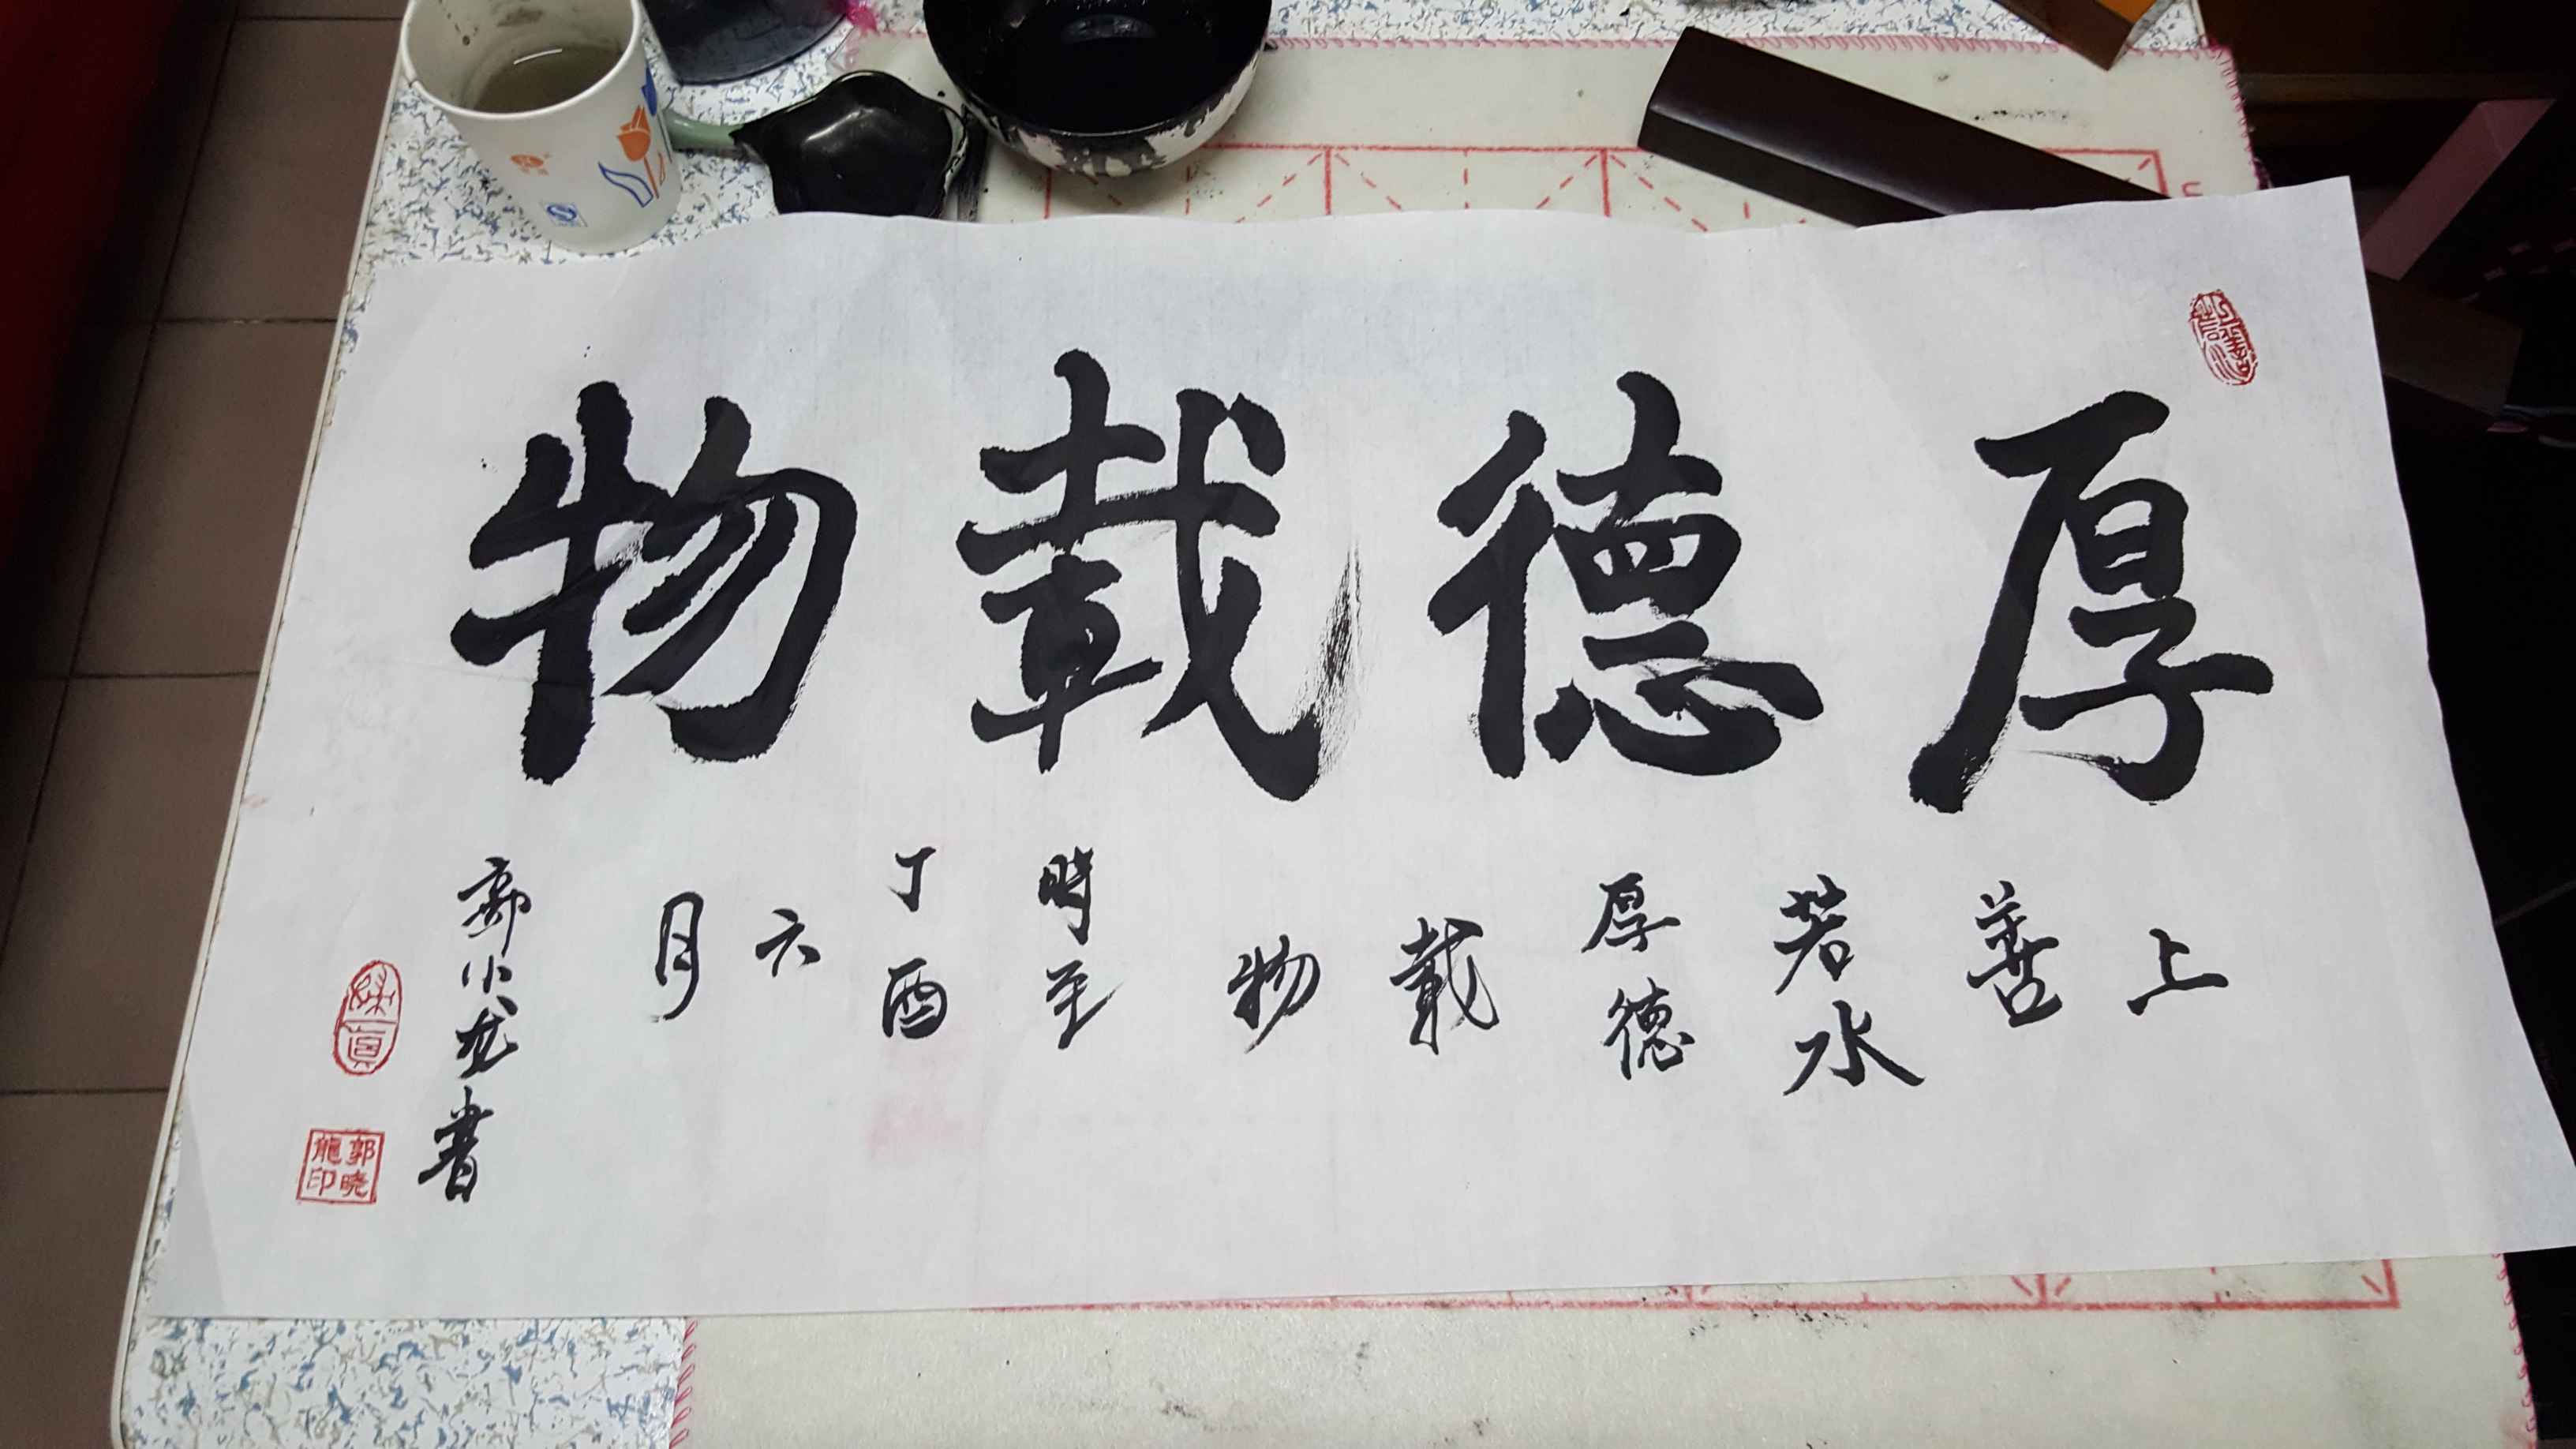 厚德載物
上善若水厚德載物時至丁酉六月
郭小龙書
上善若水
郭晓龍印